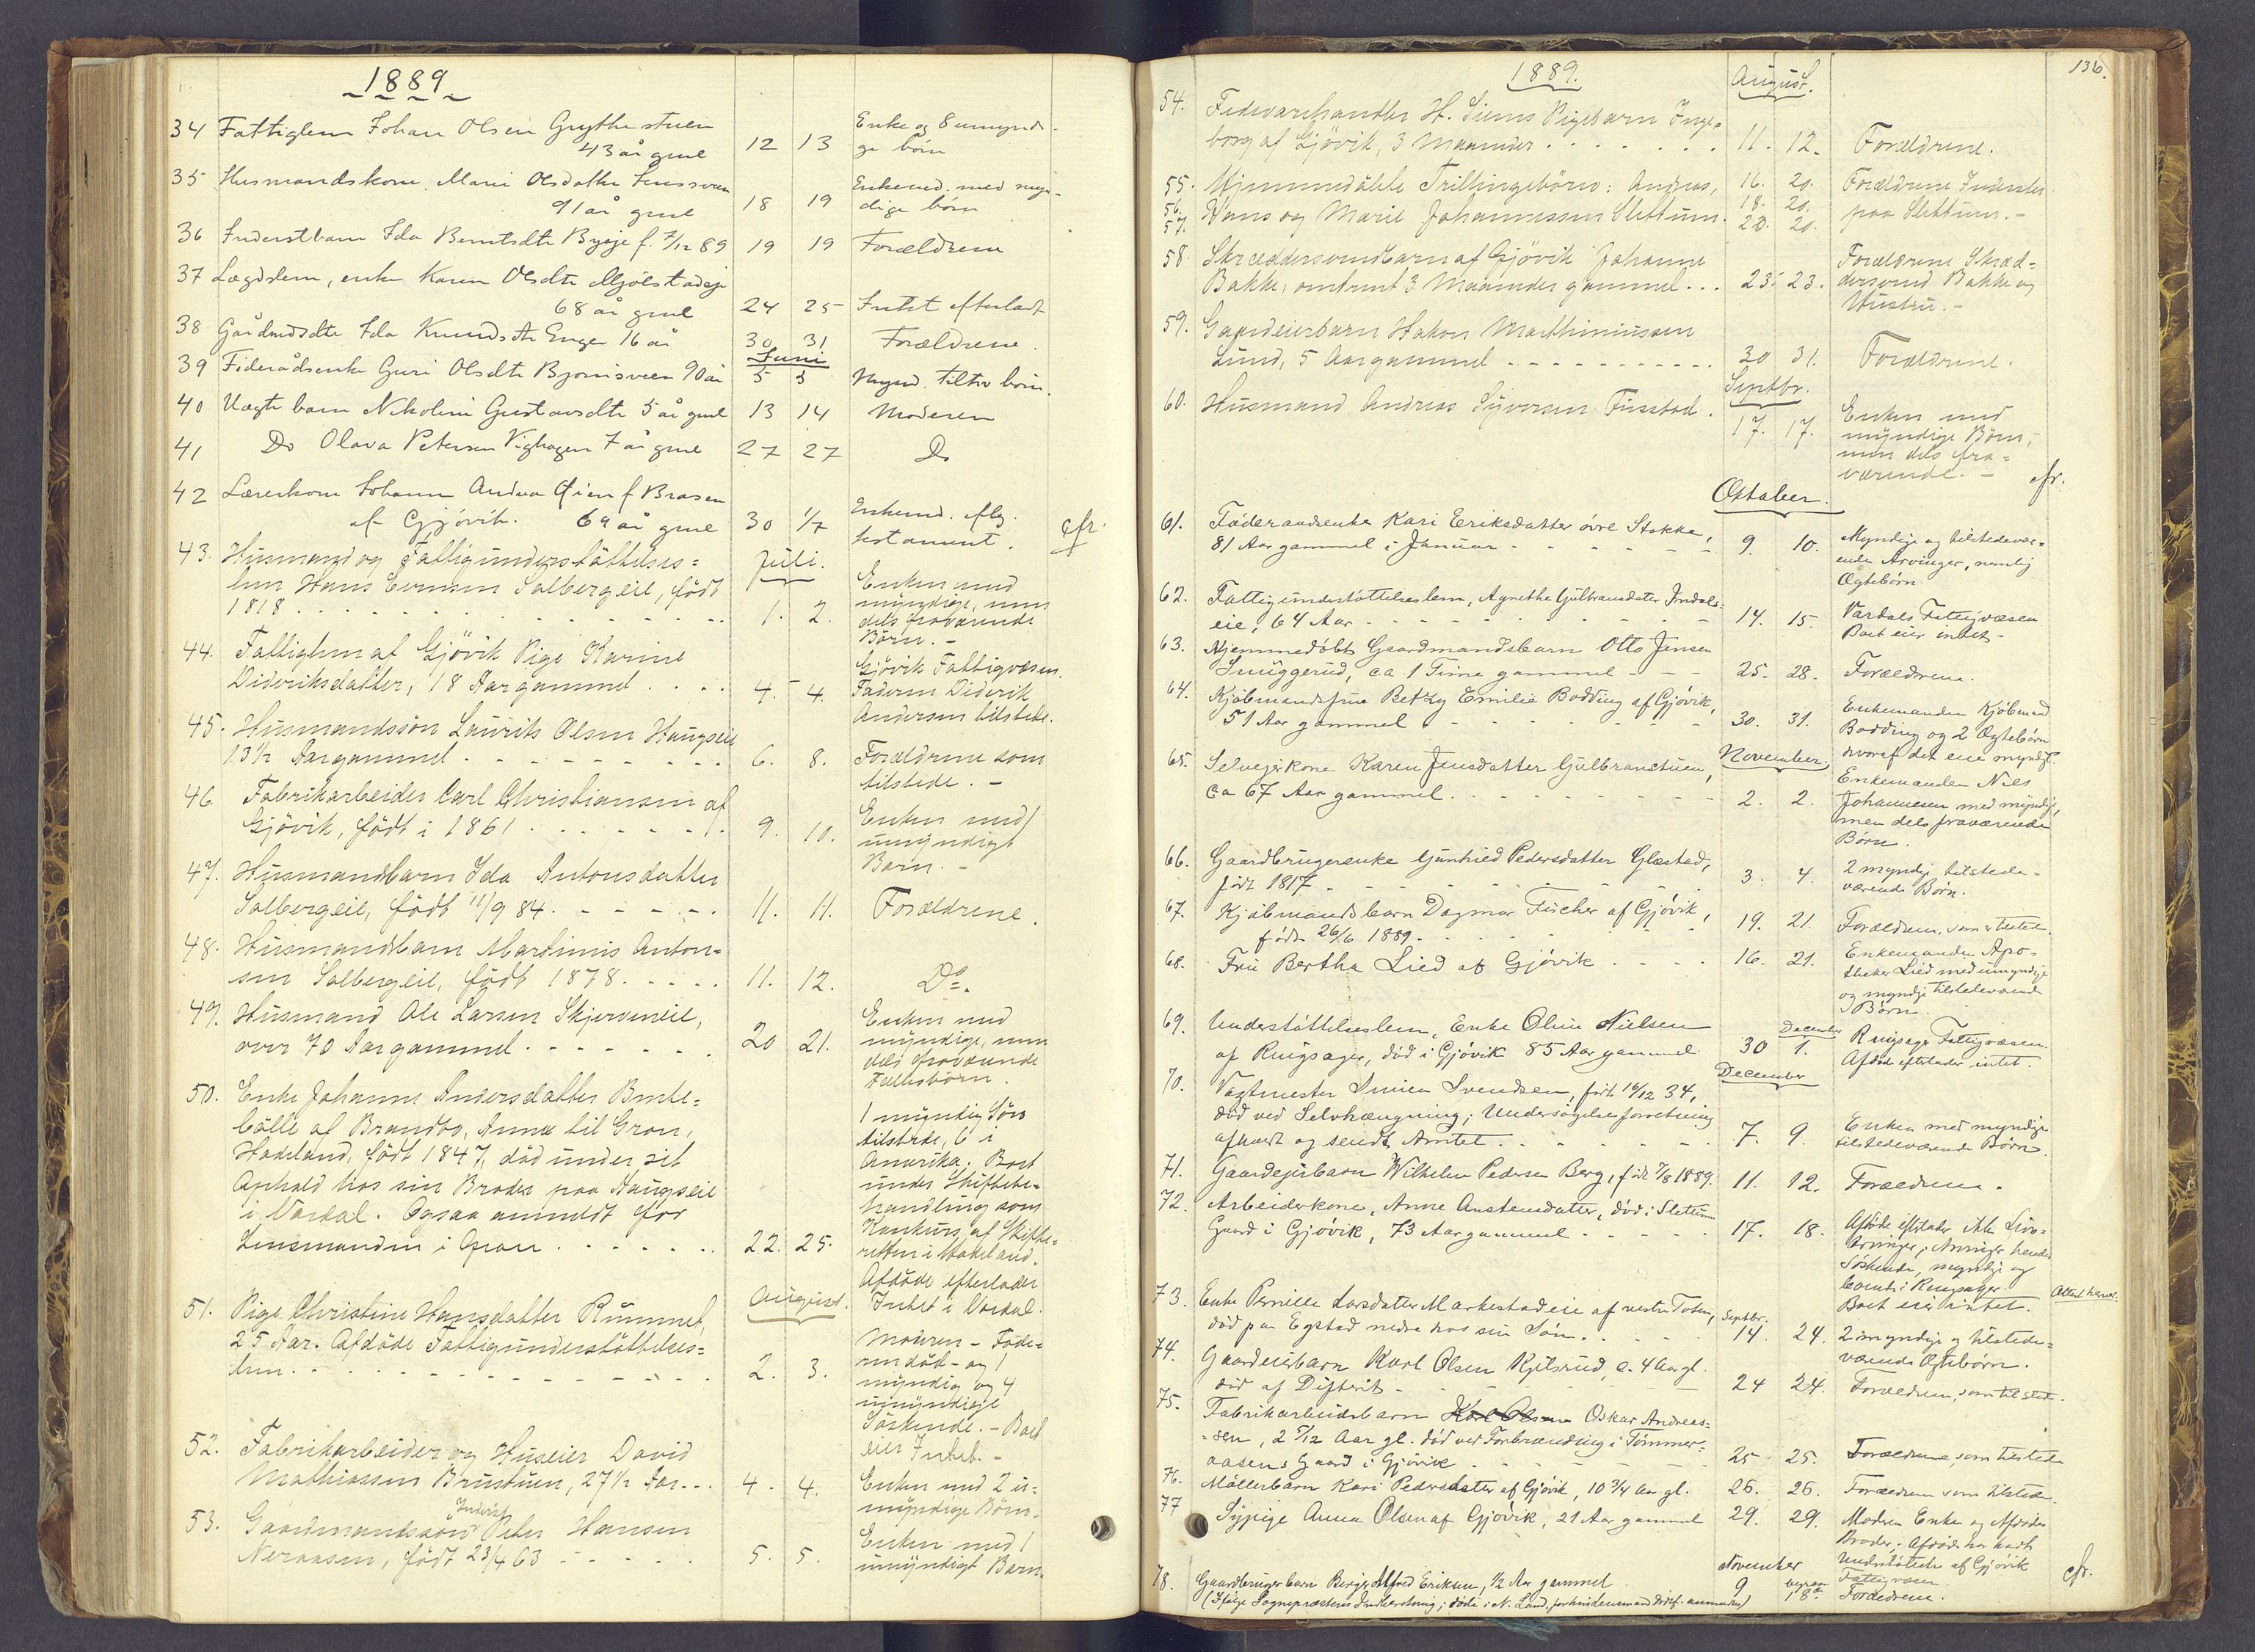 1889.
34 Fattiglem Johan Olsen Grythestuen
43 år gml 12 13 Enke og 8 umyndi-
ge börn
35 Husmandskone Marie Olsdatter
91 år gml 18 19 Enkemd. med myn-
dige börn
36 Inderstbarn Ida Berntsdtr Bygje f. 7/12 89 19 19 Forældrene
37 Lægdslem, enke Karen Olsdtr Mjölstadeje
68 år gml 24 25 Intet efterladt
38 Gårdmdsdtr Ida Knudsdtr Enger 16 år 30 31 Forældrene.
Juni
39 Föderådsenke Guri Olsdtr Bjørnsveen 90 år 5 5 Mynd. tilstv börn.
40 Uægte barn Nikoline Gustavsdtr 5 år gml 13 14 Moderen
41 Do Olava Petersen Vighagen 7 år gml 27 27 Do
42 Lærerkone Johanne Andrea Øien f Brasen
af Gjövik. 69 år gml 30 1/7 Enkemd. eftg.
testament. cfr.
43. Husmand og Fattigunderstöttelses=
lem Hans Evensen Solbergeie, födt
1818 . . . Juli. 1. 2. Enken med
myndige, men
dels fraværende
Börn. -
44. Fattiglem af Gjövik Pige Karine
Dideriksdatter, 18 Aar gammel . . . 4. 4. Gjövik Fattigvæsen.
Faderen Diderik
Andersen tilstede.
45. Husmandssön Laurits Olsen Haugseie
13½ Aar gammel - - - 6. 8. Forældrene som
tilstede. -
46. Fabrikarbeider Carl Christiansen af
Gjövik, födt i 1861 . . . 9. 10. Enken med 1
umyndigt
Barn. -
47. Husmandbarn Ida Antonsdatter
Solbergeie, födt 11/9 84. - - - 11. 11. Forældrene.
48. Husmandbarn Martinius Anton=
sen Solbergeie, födt 1878. - - - 11. 12. Do.
49. Husmand Ole Larsen Skjerveneie,
over 70 Aar gammel - - - 20 21. Enken med
myndige, men
dels fraværende
Fællesbörn.
50. Enke Johanne Andersdatter Bente=
bölle af Brandbo, Annex til Gran,
Hadeland, födt 1847, död under sit
Ophold hos sin Broder paa Haugseie
i Vardal. Ogsaa anmeldt for
Lensmanden i Gran - - - 22. 25. 1 myndig Sön
tilstede, 6 i
Amerika; Boet
under Skiftebe=
handling som
Konkurs af Skifte=
retten i Hadeland.
Afdöde efterlader
Intet i Vardal.
August.
51. Pige Christine Hansdatter Rümmel,
25 Aar. Afdöde Fattigunderstöttelses=
lem. - - - 2. 3. Moderen - Fade=
ren död - og 1
myndig og 4
umyndige
Söskende. - Boet
eier Intet. -
52. Fabrikarbeider og Huseier David
Mathiassen Brustuen, 27½ Aar.-. 4. 4. Enken med 2 u=
myndige Börn.
53. Gaardmandssön Inderst Peter Hansen
Neraasen, födt 23/4 63 - - - 5. 5. Enken med 1
umyndigt Barn.
1889. August. 136.
54. Fedevarehandler H. Siems Pigebarn Inge=
borg af Gjövik, 3 Maaneder . . . 11. 12. Forældrene.
55. Hjemmedöbte Trillingebörn: Andreas, 16. 20. Forældrene Inderster
56. Hans og Marie Johannessen Slettum. 18. 20. paa Slettum. -
57. 20. 20.
58. Skræddersvendbarn af Gjövik Johanne
Bakke, omtrent 3 Maaneder gammel ... 23. 23. Forældrene Skræd=
dersvend Bakke og
Hustru. -
59. Gaardeierbarn Hakon Marthiniussen
Lund, 5 Aar gammel - - - 30 31. Forældrene.
Septbr.
60. Husmand Andreas Syversen Finstad. 17. 17. Enken med
myndige Börn,
men dels fra=
værende. - cfr.
Oktober.
61. Föderaadsenke Kari Eeriksdatter övre Stokke,
81 Aar gammel i Januar - - - 9. 10. Myndige og tilstedevær=
ende Arvinger, nemlig
Ægtebörn
62. Fattigunderstöttelseslem, Agnethe Gulbrandsdatter Indals=
eie, 64 Aar - - - 14. 15. Vardals Fattigvæsen
Boet eier intet -
63. Hjemmedöbt Gaardmandsbarn Otto Jensen
Snuggerud, ca 1 Time gammel - - - 25. 28. Forældrene.
64. Kjöbmandsfrue Betzy Emilie Bodding af Gjövik,
51 Aar gammel - - - 30. 31. Enkemanden Kjöbmand
Bodding og 2 Ægtebörn
hvoraf det ene myndigt.
November,
65. Selveierkone Karen Jensdatter Gulbranstuen,
ca 67 Aar gammel. - - - 2. 2. Enkemanden Nils
Johannesen med myndige,
men dels fraværende
Börn.
66. Gaardbrugerenke Gunhild Pedersdatter Glæstad,
födt 1817 - - - 3. 4. 2 myndige tilstede-
værende Börn.
67. Kjöbmandsbarn Dagmar Fischer af Gjövik,
födt 26/6 1889 - - - 19. 21. Forældrene, som er tilstede.
68. Frue Bertha Lied af Gjövik - - - 16. 21. Enkemanden Apo-
theker Lied med umyndige
og myndige tilstedeværende
Börn.
69. Understöttelseslem, Enke Oline Nielsen
af Ringsager, död i Gjövik 85 Aar gammel 30 December 1. Ringsager Fattigvæsen.
Afdöde efterlader intet.
December
70. Vagtmester Simen Svendsen, födt 16/12 34,
död ved Selvhængning; Undersögelsesforretning
afholdt og sendt Amtet. - - - 7. 9. Enken med myndige
tilstedeværende Börn.
71. Gaardejerbarn Wilhelm Pedersen Berg, födt 7/8 1889. 11. 12. Forældrene.
72. Arbeiderkone, Anne Austensdatter, död i Slettum
Gaard i Gjövik, 73 Aar gammel - - - 17. 18. Afdöde efterlader ikke Livs=
arvinger; Arvinger hendes
Söskende, myndige og
boende i Ringsager.
Boet eier intet.
73. Enke Pernille Larsdatter Markestadeie af vestre Toten,
död paa Egstad nedre hos sin Sön. - - - Septbr. 14. 24. 2 myndige og tilstede=
værende Ægtebörn.
74. Gaardeierbarn Karl Olsen Kjelsrud, c. 4 Aar gl.
död af Difterit - - - 24 24. Forældrene, som tilstede.
75. Fabrikarbeiderbarn Karl Olsen Oskar Andreas=
sen, 2 5/12 Aar gl. död ved Forbrænding i Tömmer=
aasens Gaard i Gjövik - - - 25 25. Forældrene, som tilstede
76. Möllerbarn Kari Pedersdatter af Gjövik, 10 3/4 Aar gl. 26. 26. Forældrene som tilstede.
77 Sypige Anna Olsen af Gjövik, 21 Aar gammel 29. 29. Moderen Enke og Afdödes
Broder; Afdöde har havt
Understöttelse af Gjövik
Fattigvæsen. cfr.
November
78. Gaardbrugerbarn Birger Alfred Eriksen, ½ Aar gammel 9 18de Forældrene.
(Ifölge Sognepræstens Indberetning; döde i N. Land,